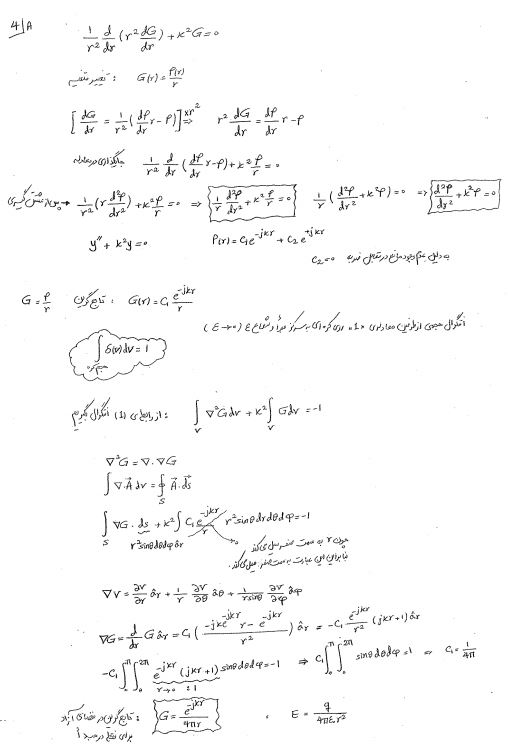 4/A
1/r² d/dr (r² dG/dr) + k²G = 0
تغییر متغیر : G(r) = P(r)/r
[dG/dr = 1/r² (dP/dr r - P)] ×r² ⇒ r² dG/dr = dP/dr r - P
جایگذاری در معادله 1/r² d/dr (dP/dr r - P) + k² P/r = 0
پس از مشتق گیری → 1/r² (r d²P/dr²) + k² P/r = 0 ⇒ 1/r d²P/dr² + k² P/r = 0 1/r (d²P/dr² + k²P) = 0 ⇒ d²P/dr² + k²P = 0
y'' + k²y = 0 P(r) = C₁e^-jkr + C₂e^+jkr
C₂ = 0 به دلیل عدم وجود موانع در مقابل
G = P/r تابع گرین : G(r) = C₁ e^-jkr/r
انتگرال حجمی از طرفین معادله ی «1» روی کره ای به مرکز مبدأ و شعاع ε (ε→0)
∫ δ(r) dv = 1
حجم کره
از رابطه ی (1) انتگرال بگیریم : ∫_V ∇²G dv + k² ∫_V G dv = -1
∇²G = ∇ . ∇G
∫ ∇.A⃗ dv = ∮_S A⃗ . ds⃗
∫_S ∇G . ds + k² ∫ C₁ e^-jkr/r r² sinθ dr dθ dφ = -1
r² sinθ dθ dφ âr 0 چون r به سمت صفر میل می کند
بنابراین این عبارت به سمت صفر میل می کند.
∇V = ∂V/∂r âr + 1/r ∂V/∂θ âθ + 1/(r sinθ) ∂V/∂φ âφ
∇G = d/dr G âr = C₁ ( (-jke^-jkr r - e^-jkr)/r² ) âr = -C₁ e^-jkr/r² (jkr+1) âr
-C₁ ∫₀^π ∫₀^2π e^-jkr (jkr+1) sinθ dθ dφ = -1 ⇒ C₁ ∫₀^π ∫₀^2π sinθ dθ dφ = 1 ⇒ C₁ = 1/4π
r→0 : 1
تابع گرین در فضای آزاد : G = e^-jkr/4πr , E = q/4πε₀r²
برای منبع در مبدأ